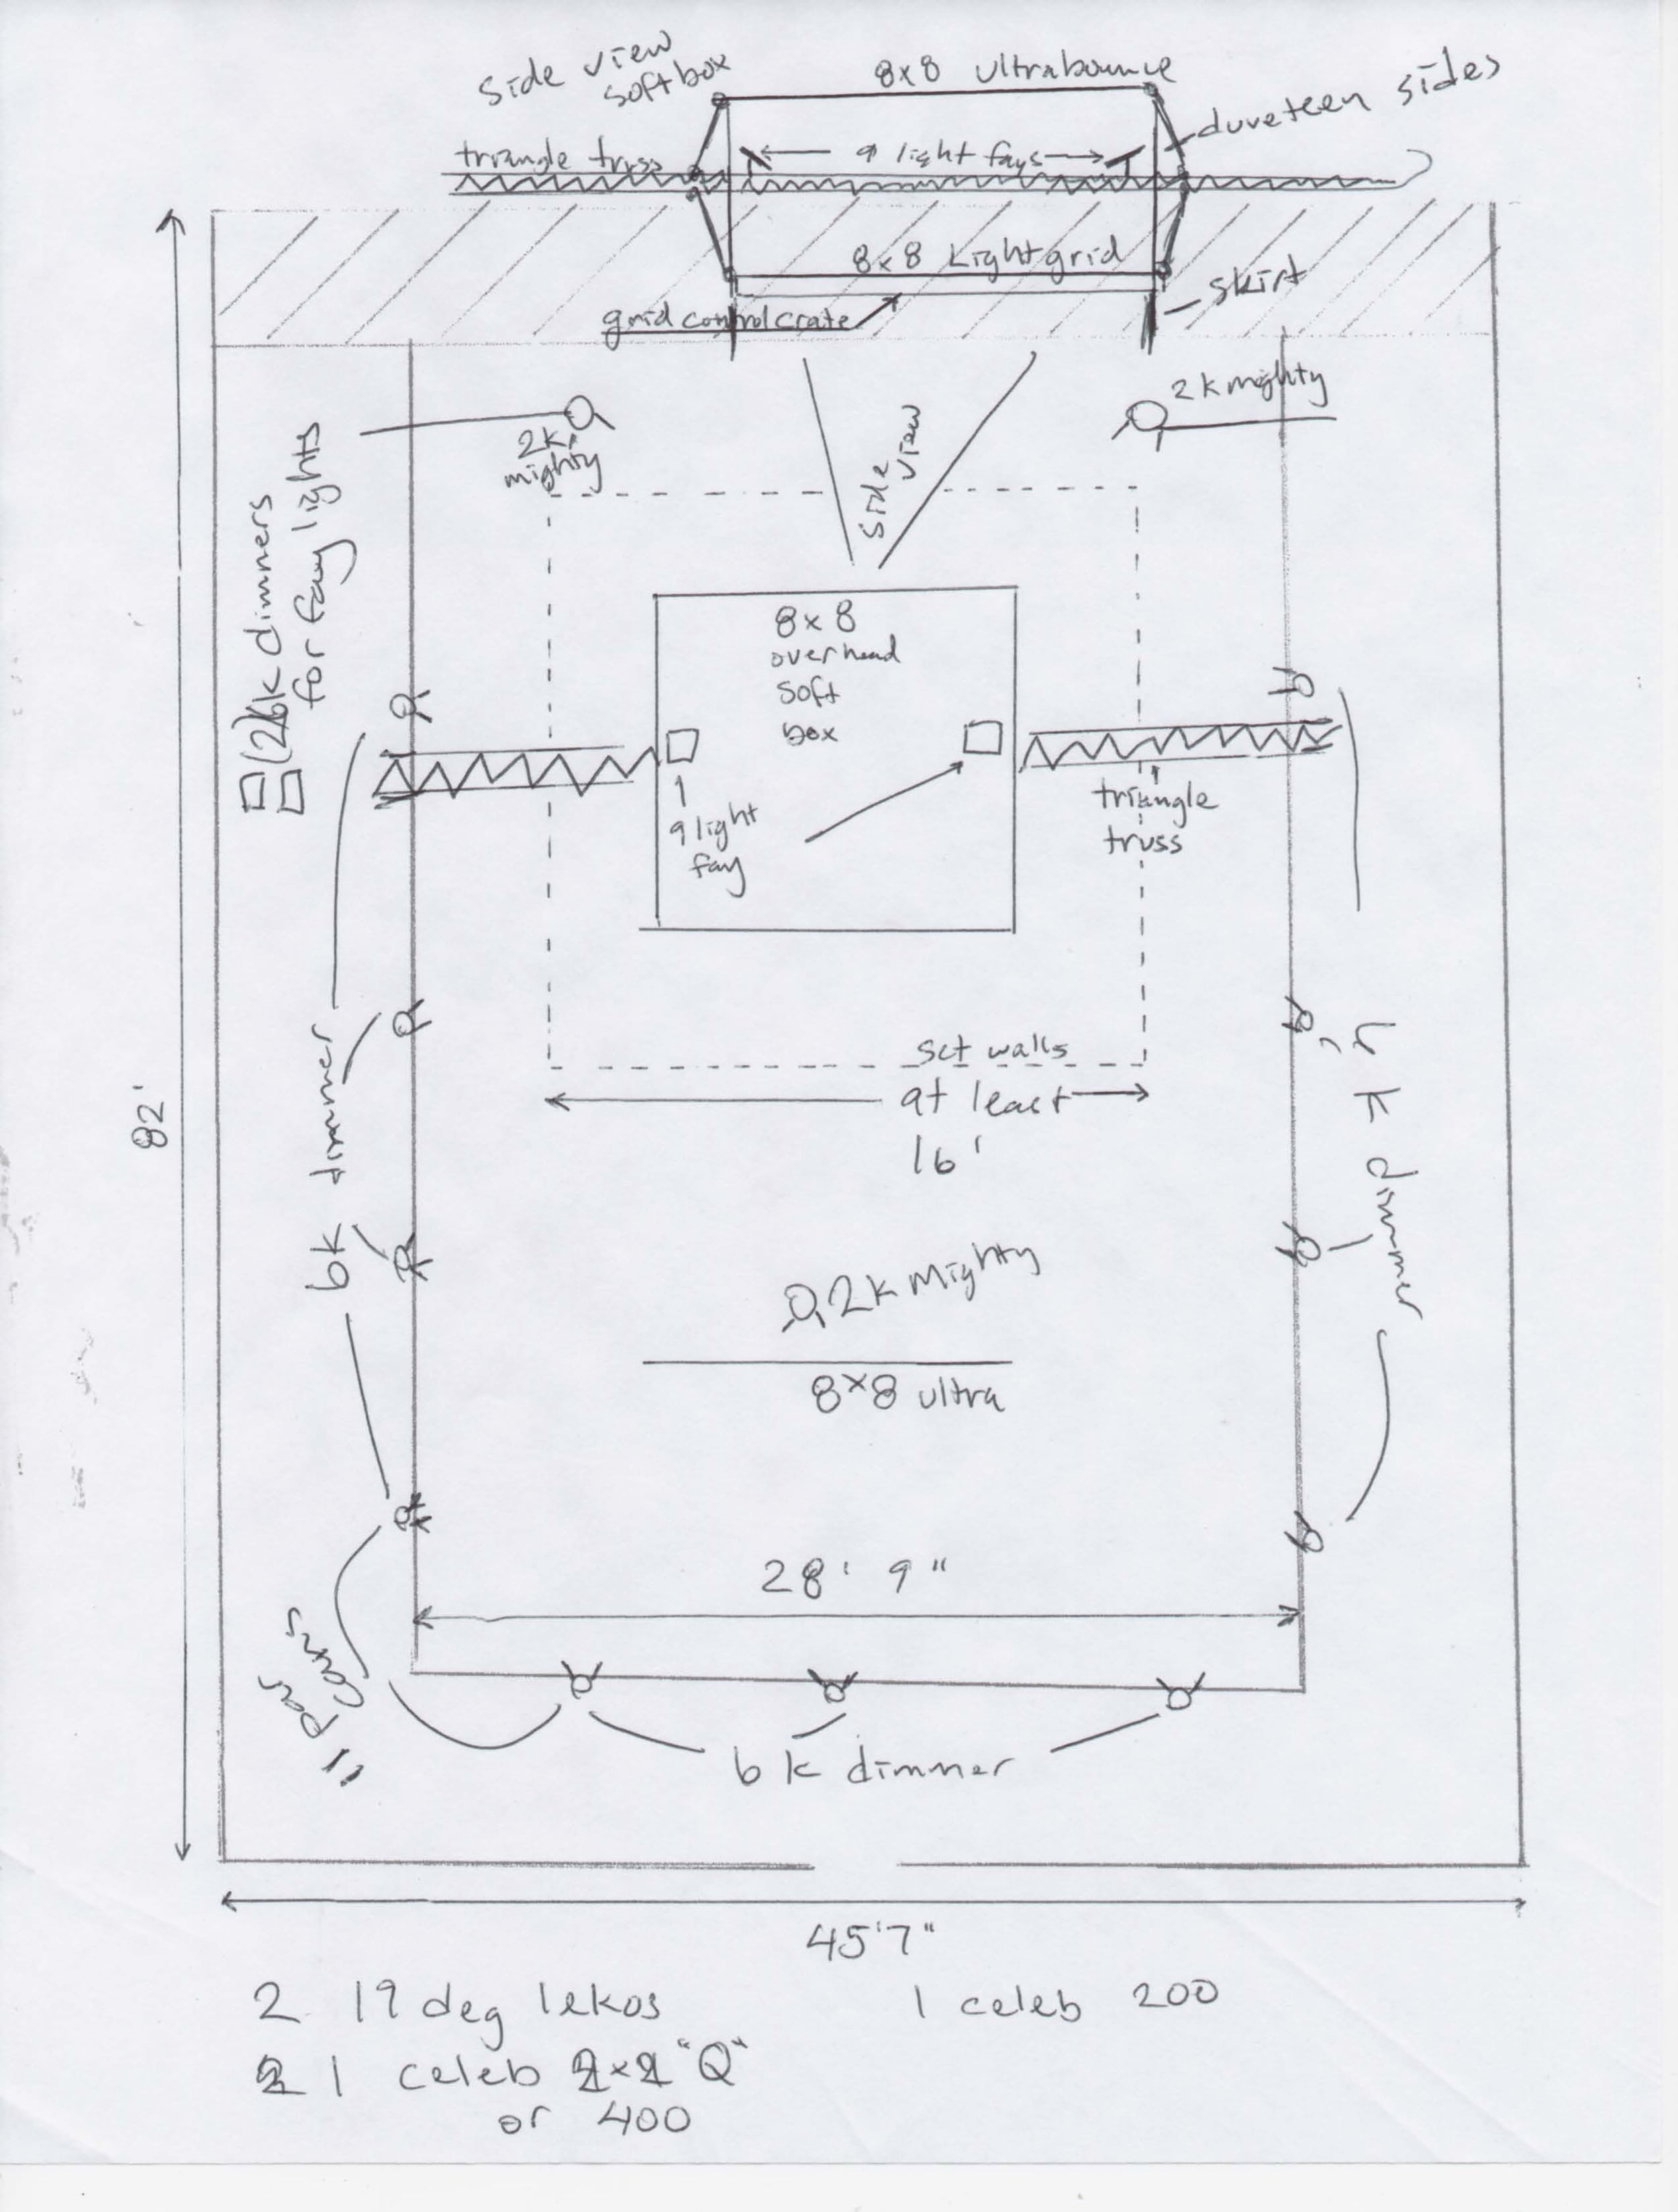 side view
softbox
8x8 ultrabounce
duveteen sides
triangle truss
9 light fays
8x8 Lightgrid
skirt
grid control crate
2k mighty
2k
mighty
side
view
(2) 6k dimmers
for fay lights
8x8
overhead
soft
box
9 light
fay
triangle
truss
set walls
at least
16'
82'
6k dimmer
6k dimmer
2k Mighty
8x8 ultra
28' 9"
11 par
cans
6k dimmer
45'7"
2 19 deg lekos
1 celeb 200
1 celeb "Q"
or 400